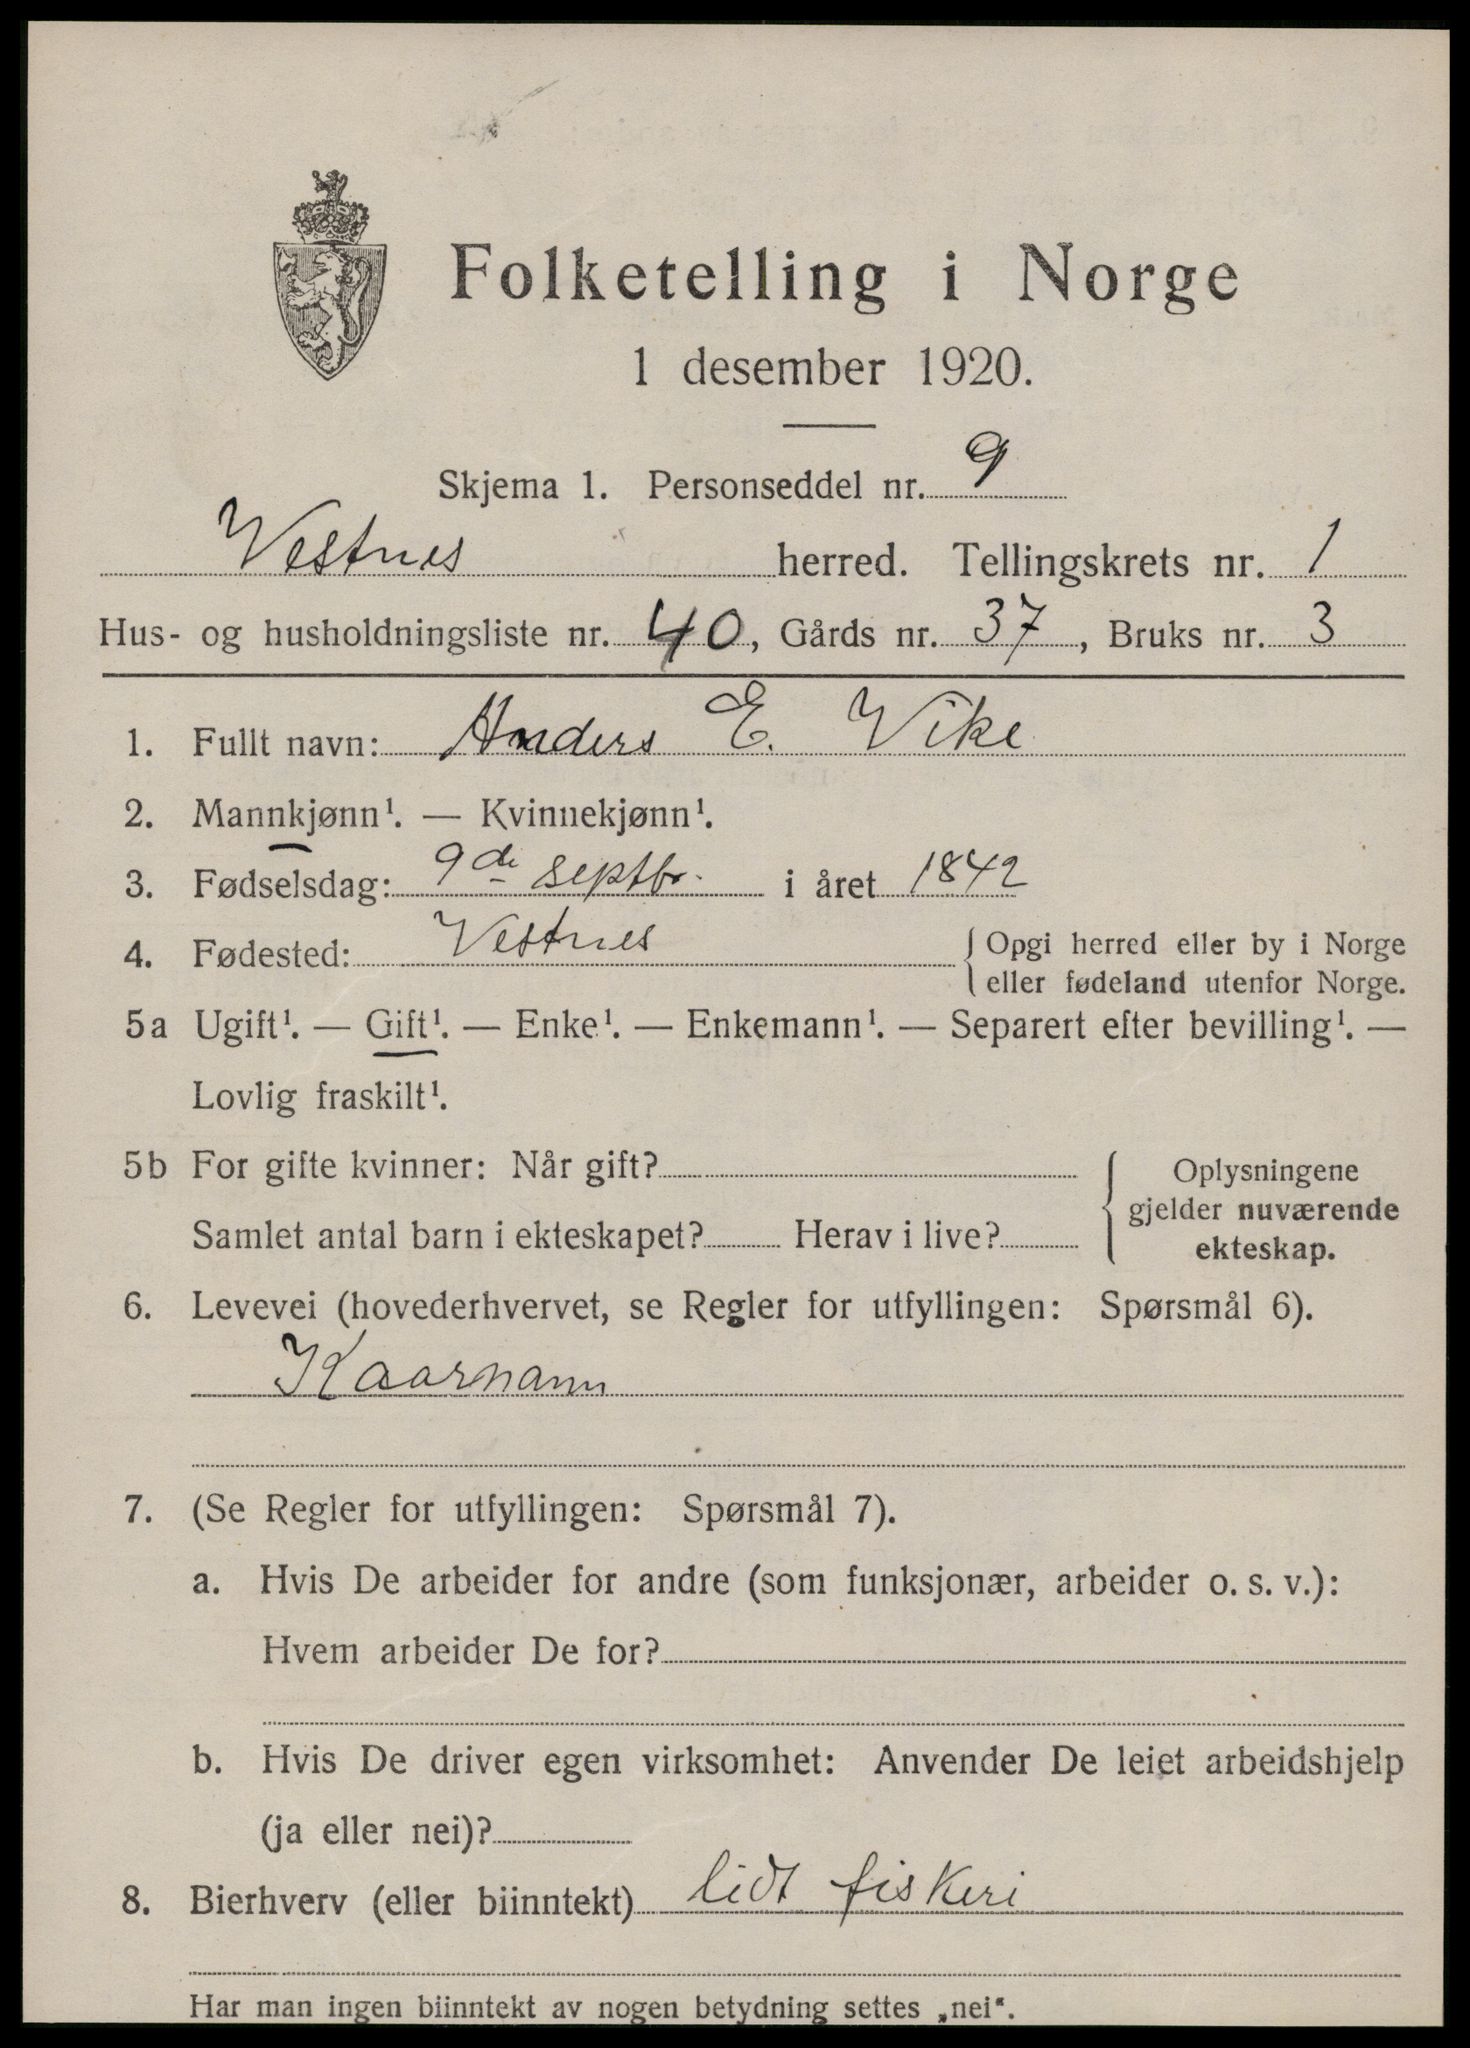 Folketelling i Norge
1 desember 1920.
Skjema 1. Personseddel nr. 9
Vestnes herred. Tellingskrets nr. 1
Hus- og husholdningsliste nr. 40, Gårds nr. 37, Bruks nr. 3
1. Fullt navn: Anders E. Vike
2. Mannkjønn¹. — Kvinnekjønn¹.
3. Fødselsdag: 9de septbr. i året 1842
4. Fødested: Vestnes { Opgi herred eller by i Norge
eller fødeland utenfor Norge.
5a Ugift¹. — Gift¹. — Enke¹. — Enkemann¹. — Separert efter bevilling¹. —
Lovlig fraskilt¹.
5b For gifte kvinner: Når gift?
Samlet antal barn i ekteskapet? Herav i live?
{ Oplysningene
gjelder nuværende
ekteskap.
6. Levevei (hovederhvervet, se Regler for utfyllingen: Spørsmål 6).
Kaarmann
7. (Se Regler for utfyllingen: Spørsmål 7).
a. Hvis De arbeider for andre (som funksjonær, arbeider o. s. v.):
Hvem arbeider De for?
b. Hvis De driver egen virksomhet: Anvender De leiet arbeidshjelp
(ja eller nei)?
8. Bierhverv (eller biinntekt) lidt fiskeri
Har man ingen biinntekt av nogen betydning settes „nei“.